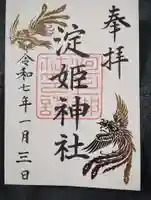 奉拝
淀姫神社
令和七年一月三日